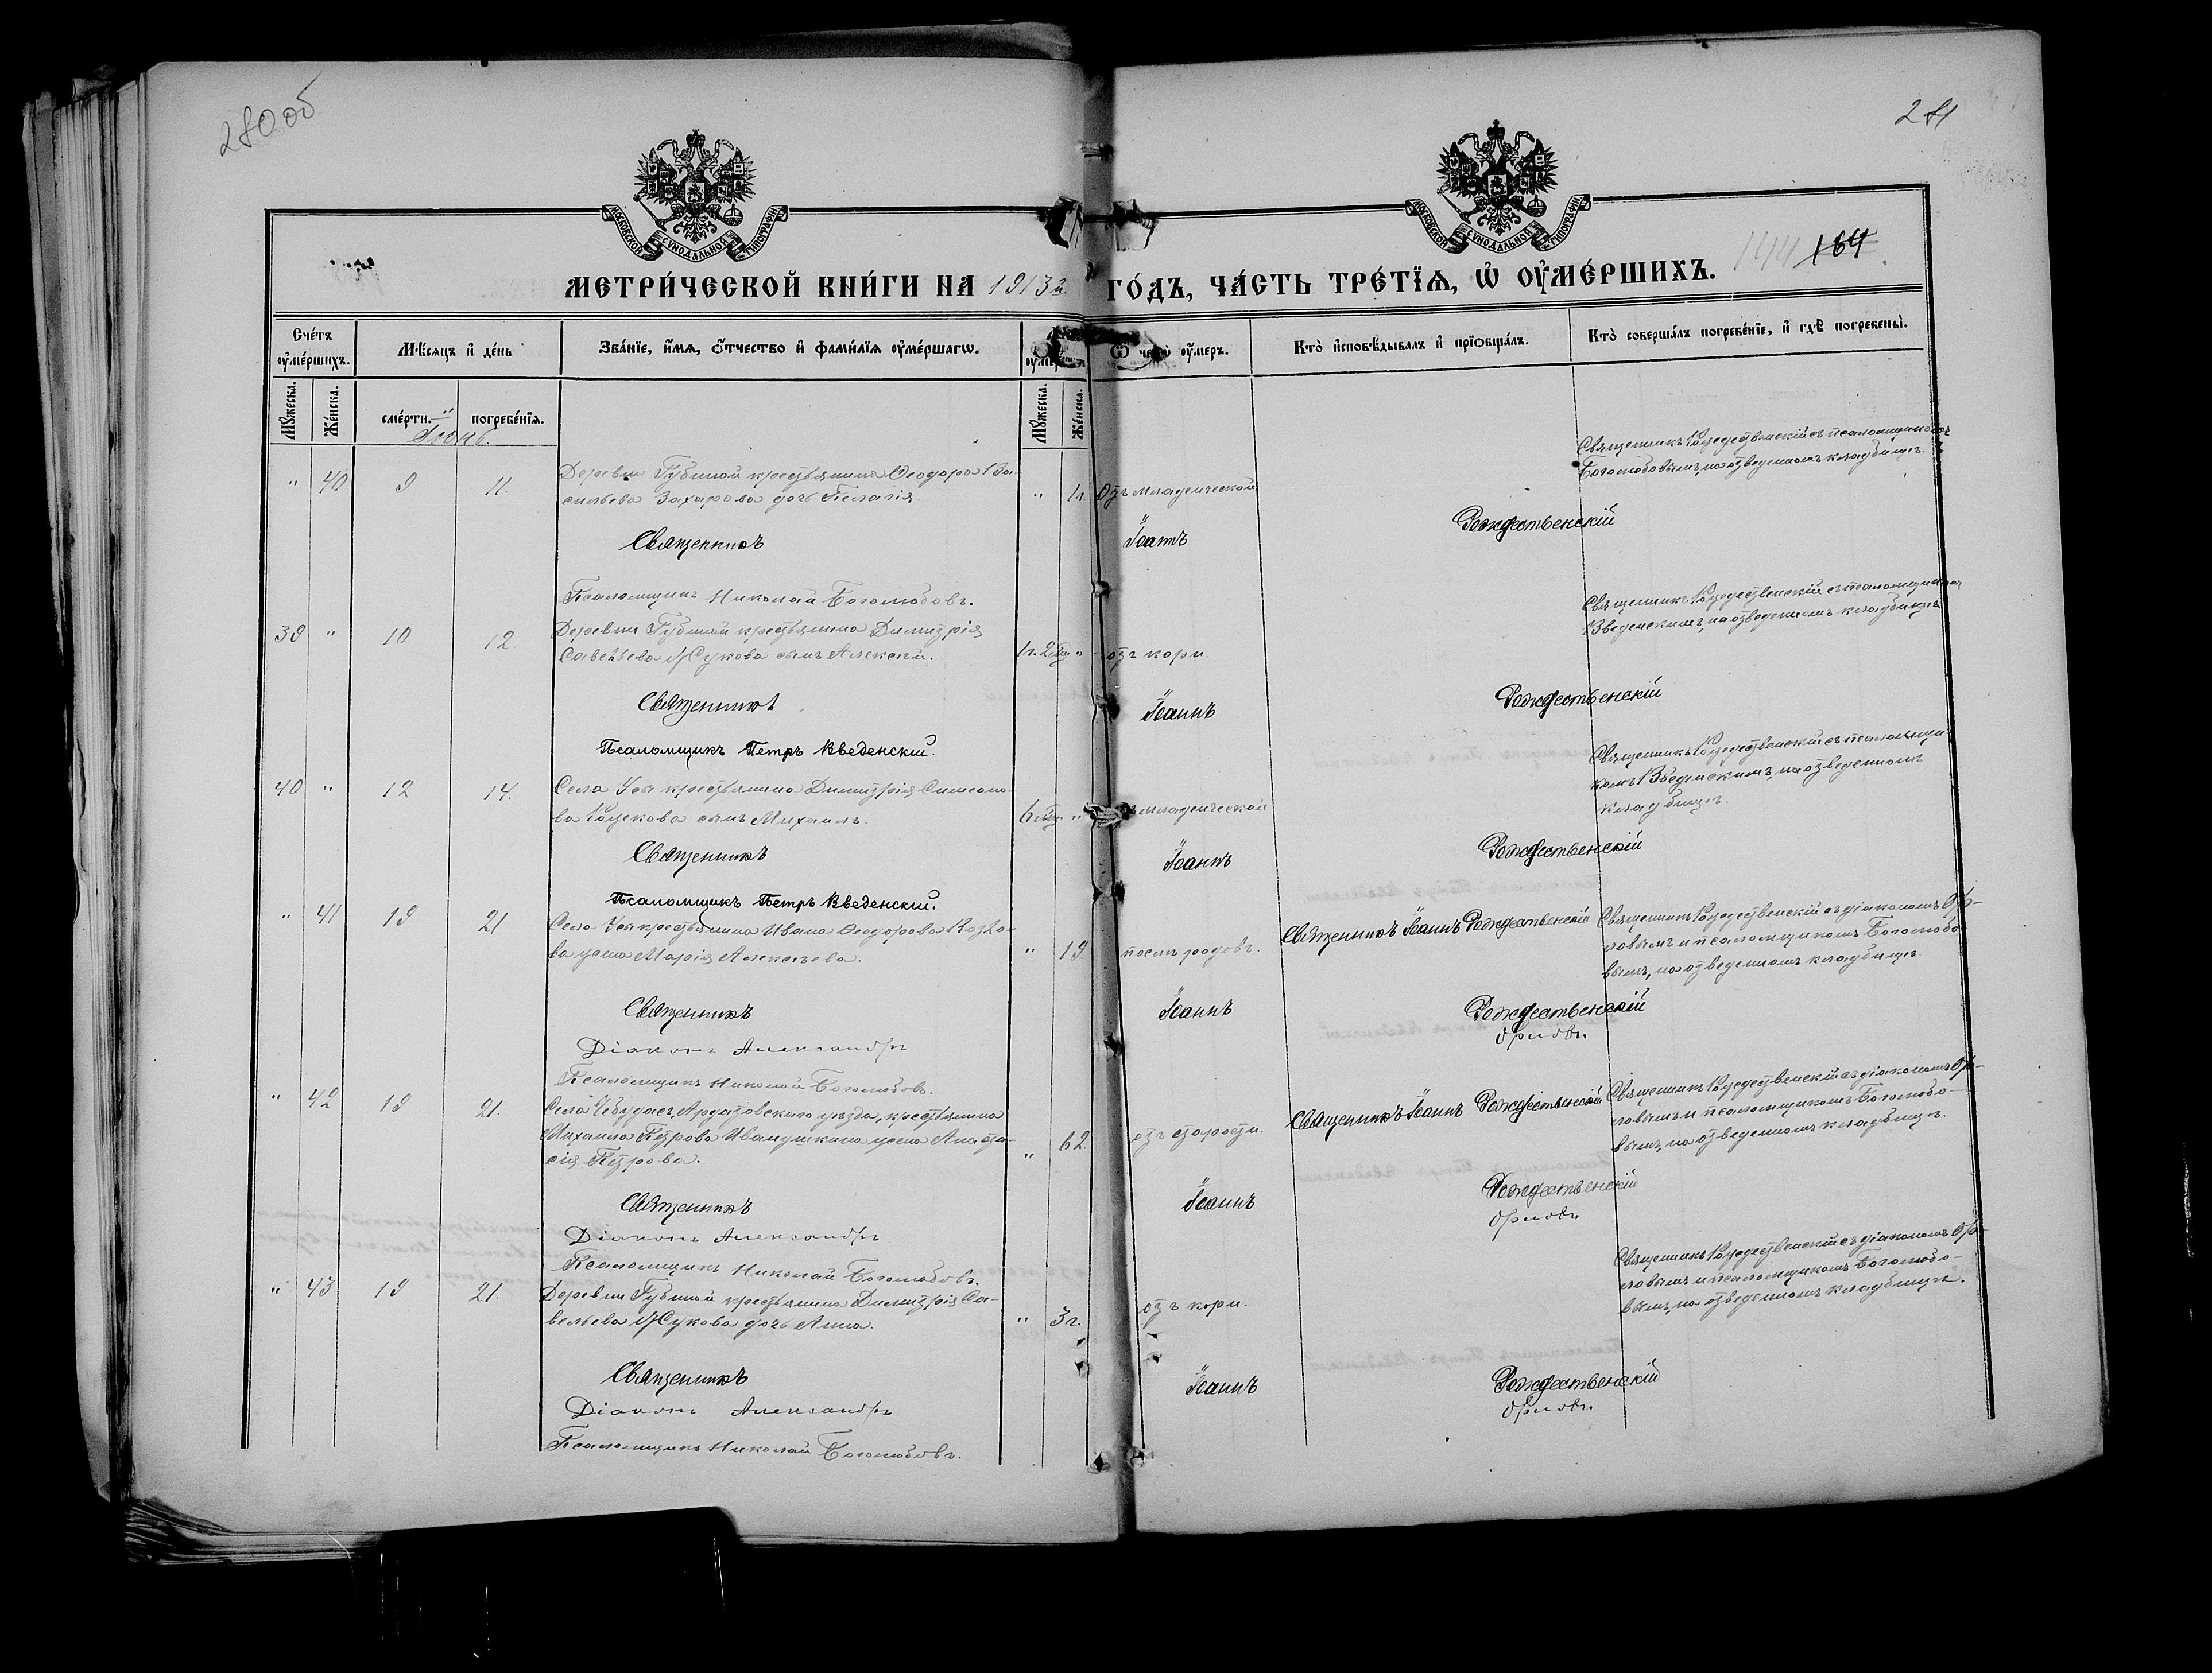 280об
281
МОСКОВСКОЙ СѴНОДАЛЬНОЙ ТИПОГРАФІИ
МОСКОВСКОЙ СѴНОДАЛЬНОЙ ТИПОГРАФІИ
144 164
МЕТРИ́ЧЕСКОЙ КНИ́ГИ НА 1913 г. ГО́ДЪ, ЧА́СТЬ ТРЕ́ТЇѦ, Ѽ ОУМЕ́РШИХЪ.
Сче́тъ оуме́ршихъ.
Мѣсѧцъ и де́нь
Зва́нїе, и́мѧ, ѻ́тчество и фами́лїѧ оуме́ршагѡ.
Ѿ чегѡ̀ оу́меръ.
Кто̀ исповѣ́дывалъ и прїѡбща́лъ.
Кто̀ соверша́лъ погребе́нїе, и гдѣ̀ погребены̀.
Мꙋ́жеска. Же́нска. сме́рти. погребе́нїѧ. Мꙋ́жеска. Же́нска.
Іюнь.
" 40 9 11.
Деревни Губиной крестьянина Ѳеодора Ва-
сильева Захарова дочь Пелагія.
" 1 г. Отъ младенческой
Священникъ Рождественскій съ псаломщикомъ
Боголюбовымъ, на отведенномъ кладбищѣ.
Священникъ Іоаннъ Рождественскій
Псаломщикъ Николай Боголюбовъ.
39 " 10 12.
Деревни Губиной крестьянина Димитрія
Савельева сынъ Алексѣй.
отъ кори.
Священникъ Рождественскій съ псаломщикомъ
Введенскимъ, на отведенномъ кладбищѣ
Священникъ Іоаннъ Рождественскій
Псаломщикъ Петръ Введенскій.
40 " 12 14.
Села Усы крестьянина Димитрія Симеоно-
ва сынъ Михаилъ.
младенческой
Священникъ Рождественскій съ псаломщи-
комъ Введенскимъ, на отведенномъ
кладбищѣ.
Священникъ Іоаннъ Рождественскій
Псаломщикъ Петръ Введенскій.
" 41 19 21
Села Усы крестьянина Ивана Ѳеодорова Козло-
ва жена Марія Алексѣева.
" 19. послѣ родовъ.
Священникъ Іоаннъ Рождественскій
Священникъ Рождественскій съ діакономъ Ор-
ловымъ и псаломщикомъ Боголюбо
вымъ, на отведенномъ кладбищѣ.
Священникъ Іоаннъ Рождественскій
Діаконъ Александръ Орловъ.
Псаломщикъ Николай Боголюбовъ.
" 42 19 21.
Села Ардатовскаго уѣзда, крестьянина
Михаила Петрова Иванушкина жена Анаста-
сія Петрова.
" 62. отъ старости.
Священникъ Іоаннъ Рождественскій
Священникъ Рождественскій съ діакономъ Ор-
ловымъ и псаломщикомъ Боголюбо-
вымъ, на отведенномъ кладбищѣ.
Священникъ Іоаннъ Рождественскій
Діаконъ Александръ Орловъ
Псаломщикъ Николай Боголюбовъ.
" 43 19 21
Деревни Губиной крестьянина Димитрія Са-
вельева дочь Анна.
" 3 г. отъ кори.
Священникъ Рождественскій съ діакономъ Ор-
ловымъ и псаломщикомъ Боголюбо-
вымъ, на отведенномъ кладбищѣ.
Священникъ Іоаннъ Рождественскій
Діаконъ Александръ Орловъ.
Псаломщикъ Николай Боголюбовъ.